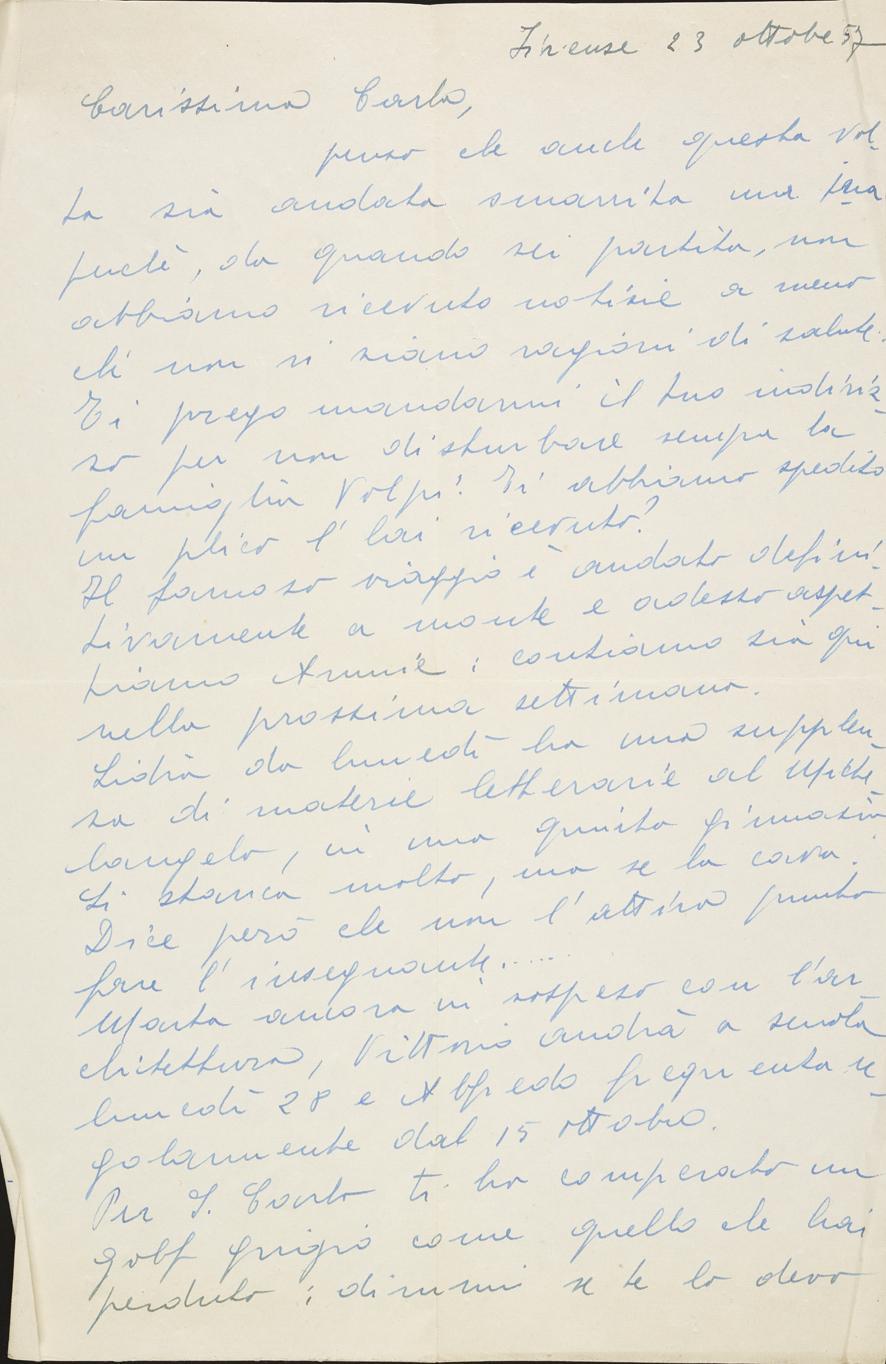 Firenze 23 ottobe 57
Carissimo Carlo,
penso che anche questa vol-
ta sia andata smarrita una tua
perchè, da quando sei partito, non
abbiamo ricevuto notizie a meno
chè non vi siano ragioni di salute.
Ti prego mandarmi il tuo indiriz-
zo per non disturbare sempre la
famiglia Volpi! Ti abbiamo spedito
un plico l'hai ricevuto?
Il famoso viaggio è andato defini-
tivamente a monte e adesso aspet-
tiamo Annie; contiamo sia qui
nella prossima settimana.
Lidia da lunedì ha una supplen-
za di materie letterarie al Miche-
langelo, in una quinta ginnasio
Si stanca molto, ma se la cava.
Dice però che non l'attira punto
fare l'insegnante.....
Marta ancora in sospeso con l'ar
chitettura, Vittorio andrà a scuola
lunedì 28 e Alfredo frequenta re-
golarmente dal 15 ottobre.
Per S. Carlo ti ho comperato un
golf grigio come quello che hai
perduto; dimmi se te lo devo